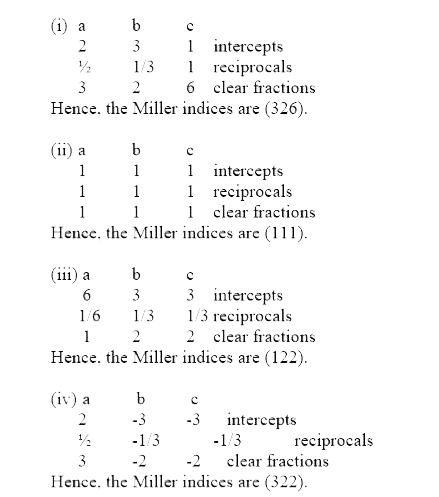 (i) a b c
2 3 1 intercepts
½ 1/3 1 reciprocals
3 2 6 clear fractions
Hence, the Miller indices are (326).
(ii) a b c
1 1 1 intercepts
1 1 1 reciprocals
1 1 1 clear fractions
Hence, the Miller indices are (111).
(iii) a b c
6 3 3 intercepts
1/6 1/3 1/3 reciprocals
1 2 2 clear fractions
Hence, the Miller indices are (122).
(iv) a b c
2 -3 -3 intercepts
½ -1/3 -1/3 reciprocals
3 -2 -2 clear fractions
Hence, the Miller indices are (322).